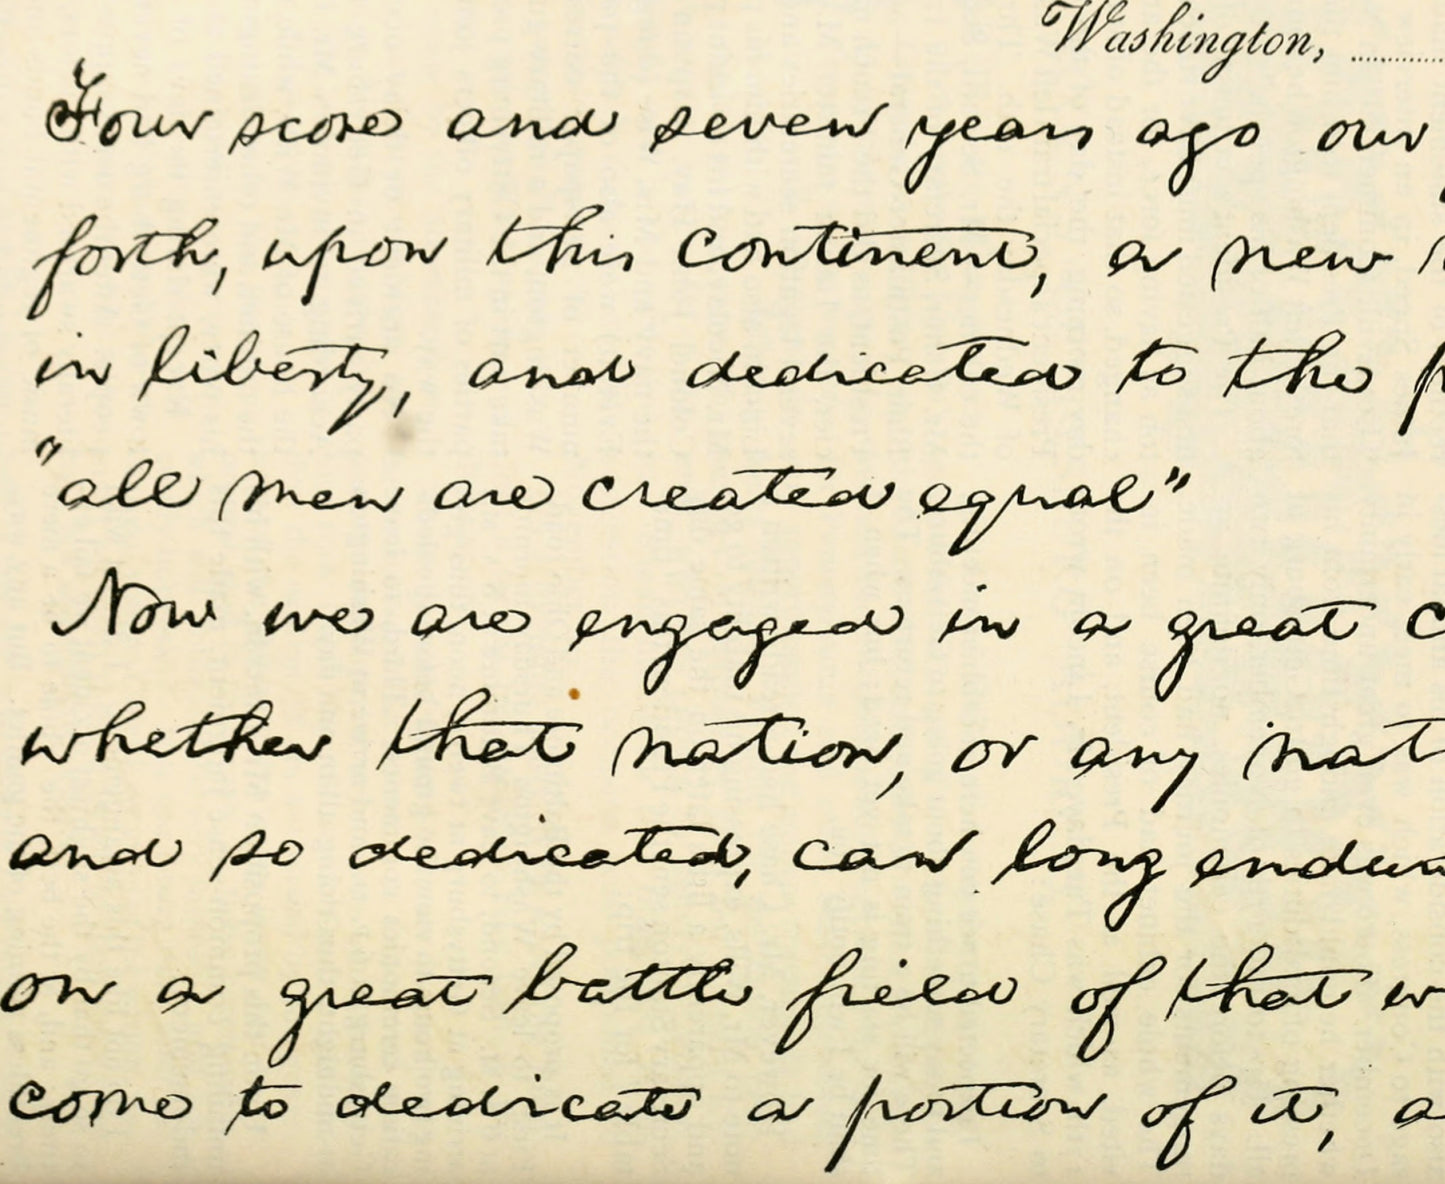 Washington,
Four score and seven years ago our
forth, upon this continent, a new
in liberty, and dedicated to the
"all men are created equal"
Now we are engaged in a great
whether that nation, or any nat
and so dedicated, can long endu
on a great battle field of that w
come to dedicate a portion of it, a